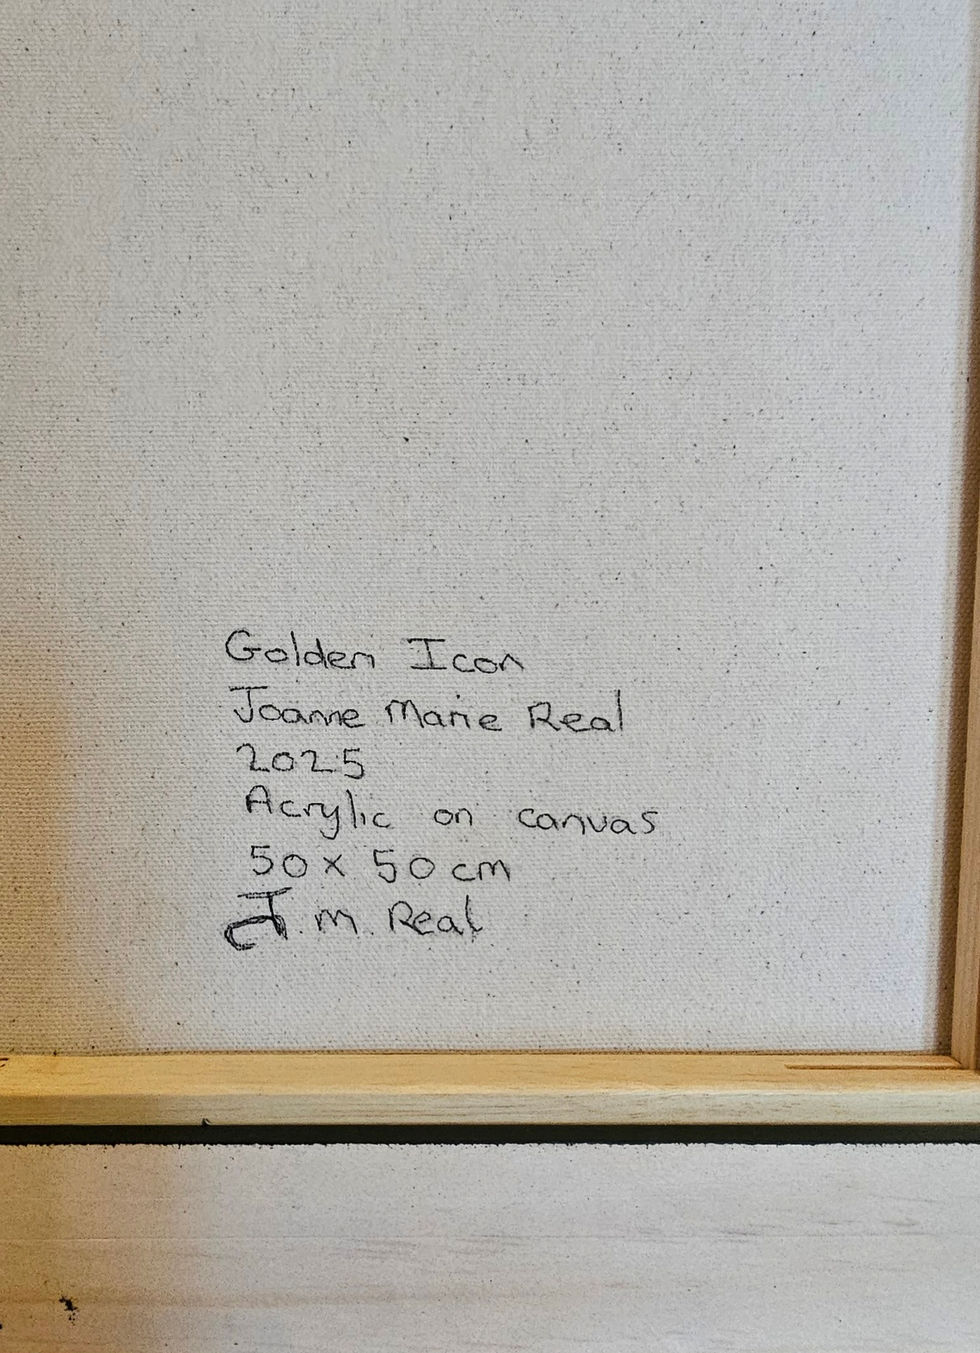 Golden Icon
Joanne Marie Real
2025
Acrylic on canvas
50 x 50 cm
J. M. Real